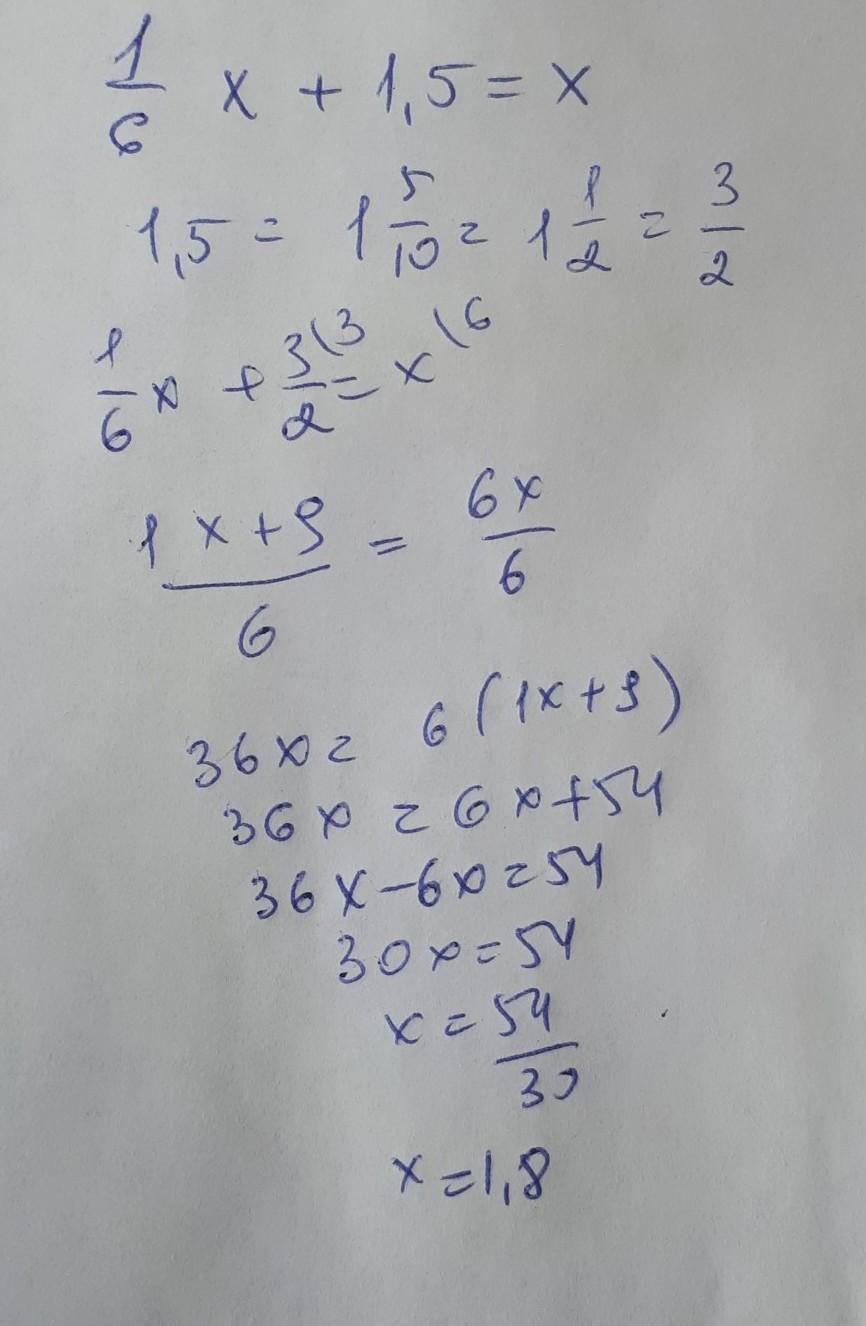 1/6 x + 1,5 = x
1,5 = 1 5/10 = 1 1/2 = 3/2
1/6 x + 3/2 \3 = x \6
1x + 9 / 6 = 6x / 6
36x = 6(1x + 9)
36x = 6x + 54
36x - 6x = 54
30x = 54
x = 54/30
x = 1,8